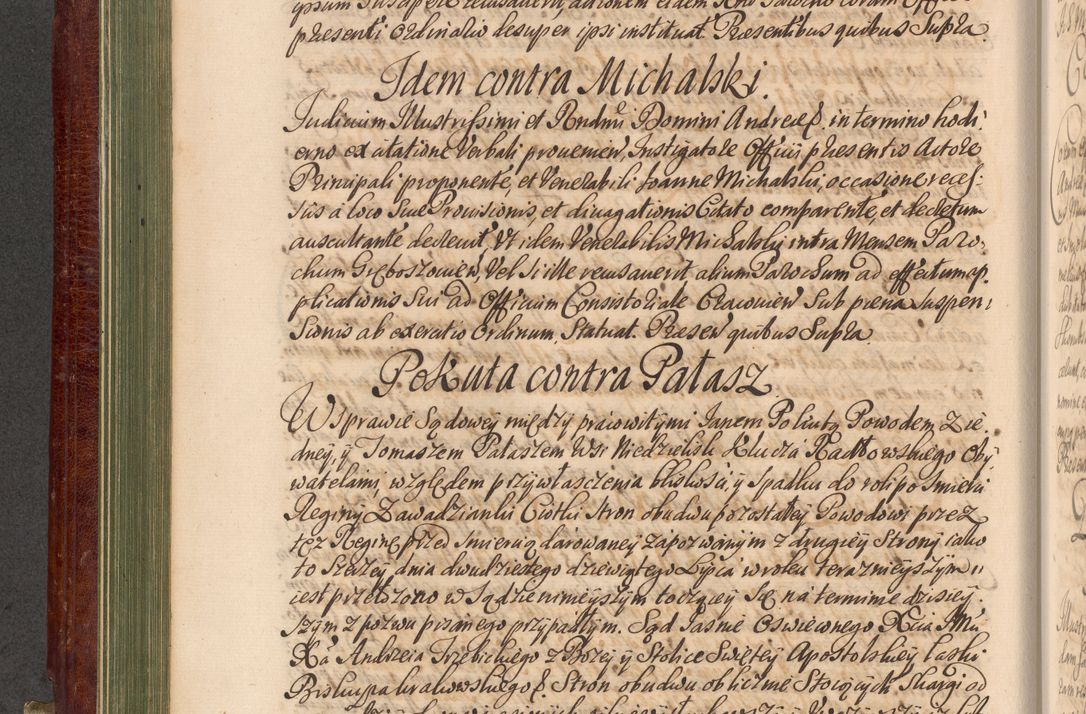 presenti Ordinario desuper ipsi instituat. Præsentibus quibus Supra.
Idem contra Michalski.
Judicium Illustrissimi et Rndmi Domini Andreæ &. in termino hodi,
erno ex citatione Verbali provenien, Instigatore Officii presentis Actore
Principali proponente, et Venerabili Joanne Michalski, occasione reces,
sus a loco Suæ Provisionis, et divagationis Citato comparente, et decretum
auscultante decrevit, Ut idem Venerabilis Michalski intra Mensem Paro,
chum Gręboszovien, Vel si ille recusaverit, alium Parochum ad effectum ap,
plicationis Sui ad Officium Consistoriale Cracovien Sub pœna Suspen,
sionis ab exercitio Ordinum, Statuat. Præsen quibus Supra.
Pokuta contra Pałasz
W Sprawie Sądowey między pracowitymi Janem Pokutą Powodem z ie,
dney, y Tomaszem Pałaszem Wsi Niedzielisk Klucza Radłowskiego Oby
watelami, względem przywłasczenia bliskości, y Spadku do roli po Smierci
Reginy Zawadzianki Ciotki Stron obudwu pozostałey Powodowi przez
też Reginę przed Smiercią darowaney zapozwanym z drugiey Strony iako
to Szerzey dnia dwudziestego dziewiątego Lipca w roku teraznieyszym
iest przełozono w Sądzie ninieyszym toczącey Się na terminie dzisiey,
szym z pozwu pisanego przypadłym. Sąd Jasnie Oswieconego Xcia JMci
Xa Andrzeia Trzebickiego z Bożey y Stolice Swiętey Apostolskiey łaski
Biskupa krakowskiego &. Stron obudwu oblicznie Stoiących Skargi od